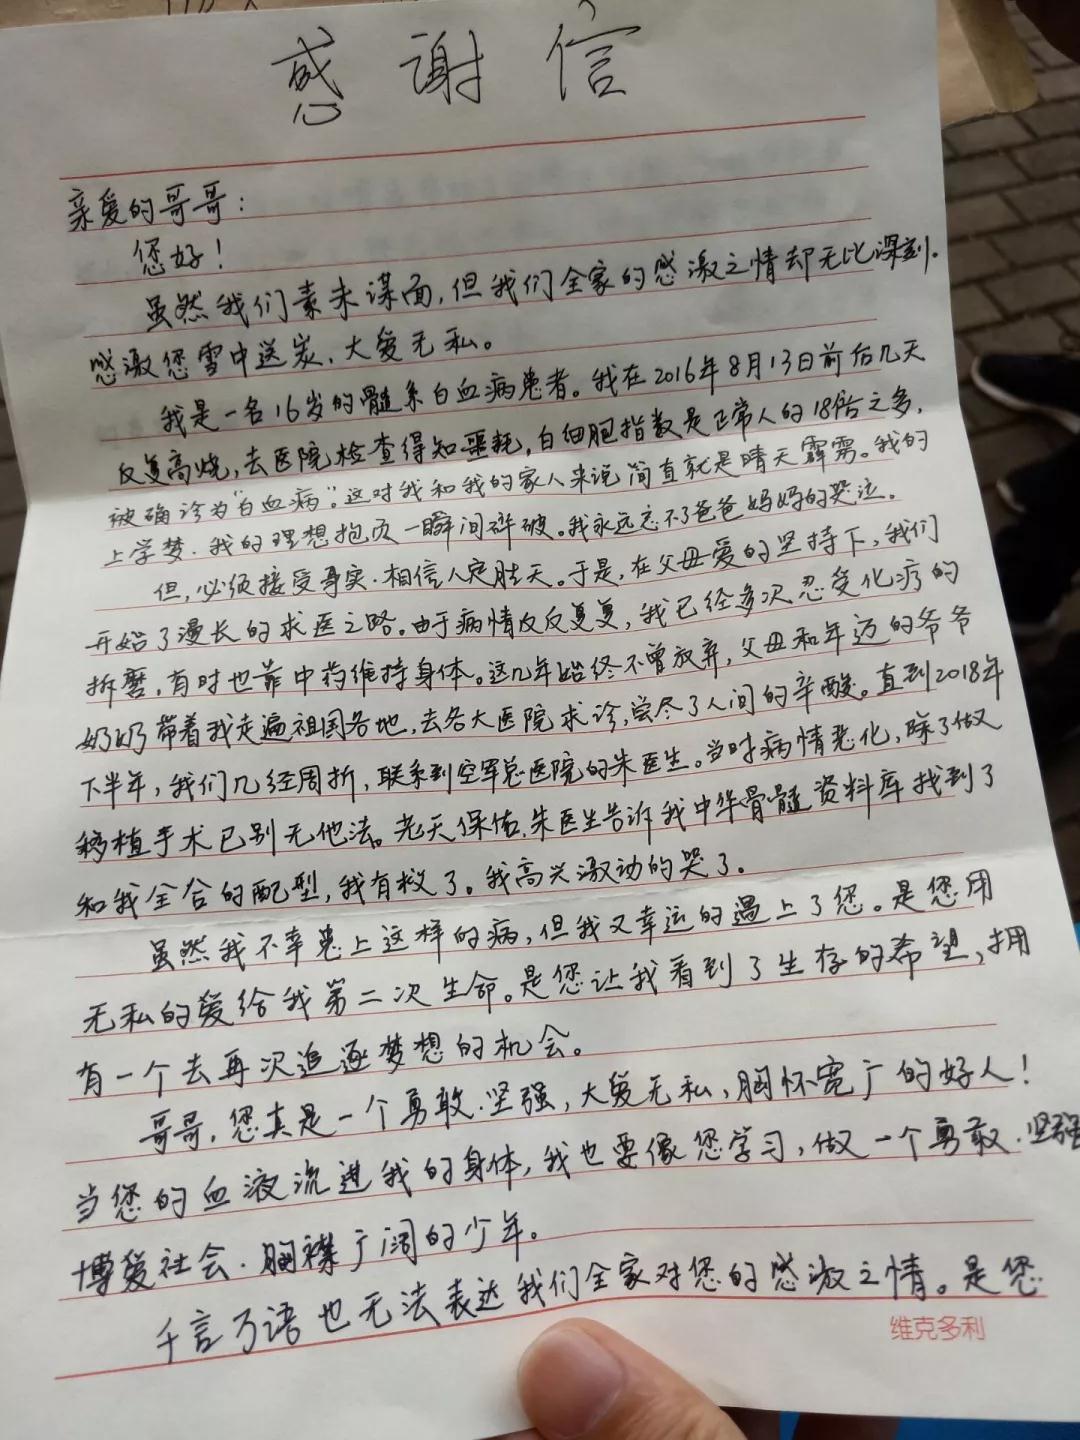 感谢信
亲爱的哥哥：
您好！
虽然我们素未谋面，但我们全家的感激之情却无比深刻．
感激您雪中送炭、大爱无私。
我是一名16岁的髓系白血病患者。我在2016年8月13日前后几天
反复高烧，去医院检查得知噩耗，白细胞指数是正常人的18倍之多，
被确诊为“白血病”。这对我和我的家人来说简直就是晴天霹雳。我的
上学梦、我的理想抱负一瞬间碎破。我永远忘不了爸爸妈妈的哭泣。
但，必须接受事实．相信人定胜天。于是，在父母爱的坚持下，我们
开始了漫长的求医之路。由于病情反反复复，我已经多次忍受化疗的
折磨，有时也靠中药维持身体。这几年始终不曾放弃，父母和年迈的爷爷
奶奶带着我走遍祖国各地，去各大医院求诊，尝尽了人间的辛酸。直到2018年
下半年，我们几经周折，联系到空军总医院的朱医生。当时病情恶化，除了做
移植手术已别无他法。老天保佑，朱医生告诉我中华骨髓资料库找到了
和我全合的配型，我有救了。我高兴激动的哭了。
虽然我不幸患上这样的病，但我又幸运的遇上了您。是您用
无私的爱给我第二次生命。是您让我看到了生存的希望，拥
有一个去再次追逐梦想的机会。
哥哥，您真是一个勇敢．坚强，大爱无私，胸怀宽广的好人！
当您的血液流进我的身体，我也要像您学习，做一个勇敢．坚强
博爱社会．胸襟广阔的少年。
千言万语也无法表达我们全家对您的感激之情。是您
维克多利